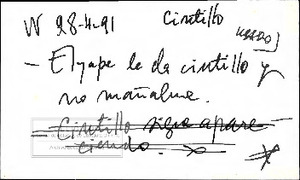 W 28-4-91 Cintillo
- El yape le da cintillo y
no mañalue.
- Cintillo sigue apare
ciendo.